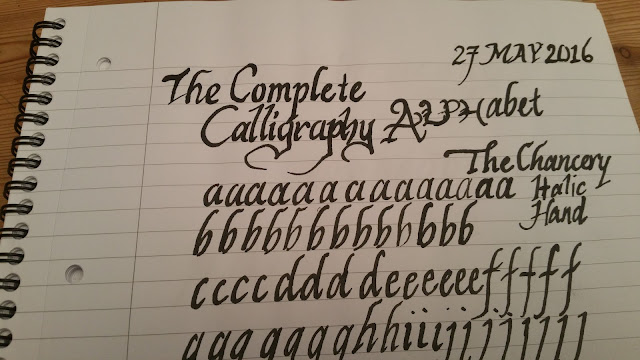 27 MAY 2016
The Complete
Calligraphy Alphabet
The Chancery
aaaaaaaaaaaaaaa Italic
bbbbbbbbbbbb Hand
ccccddddeeeeeefffff
gggggghhiiijjjjjjj